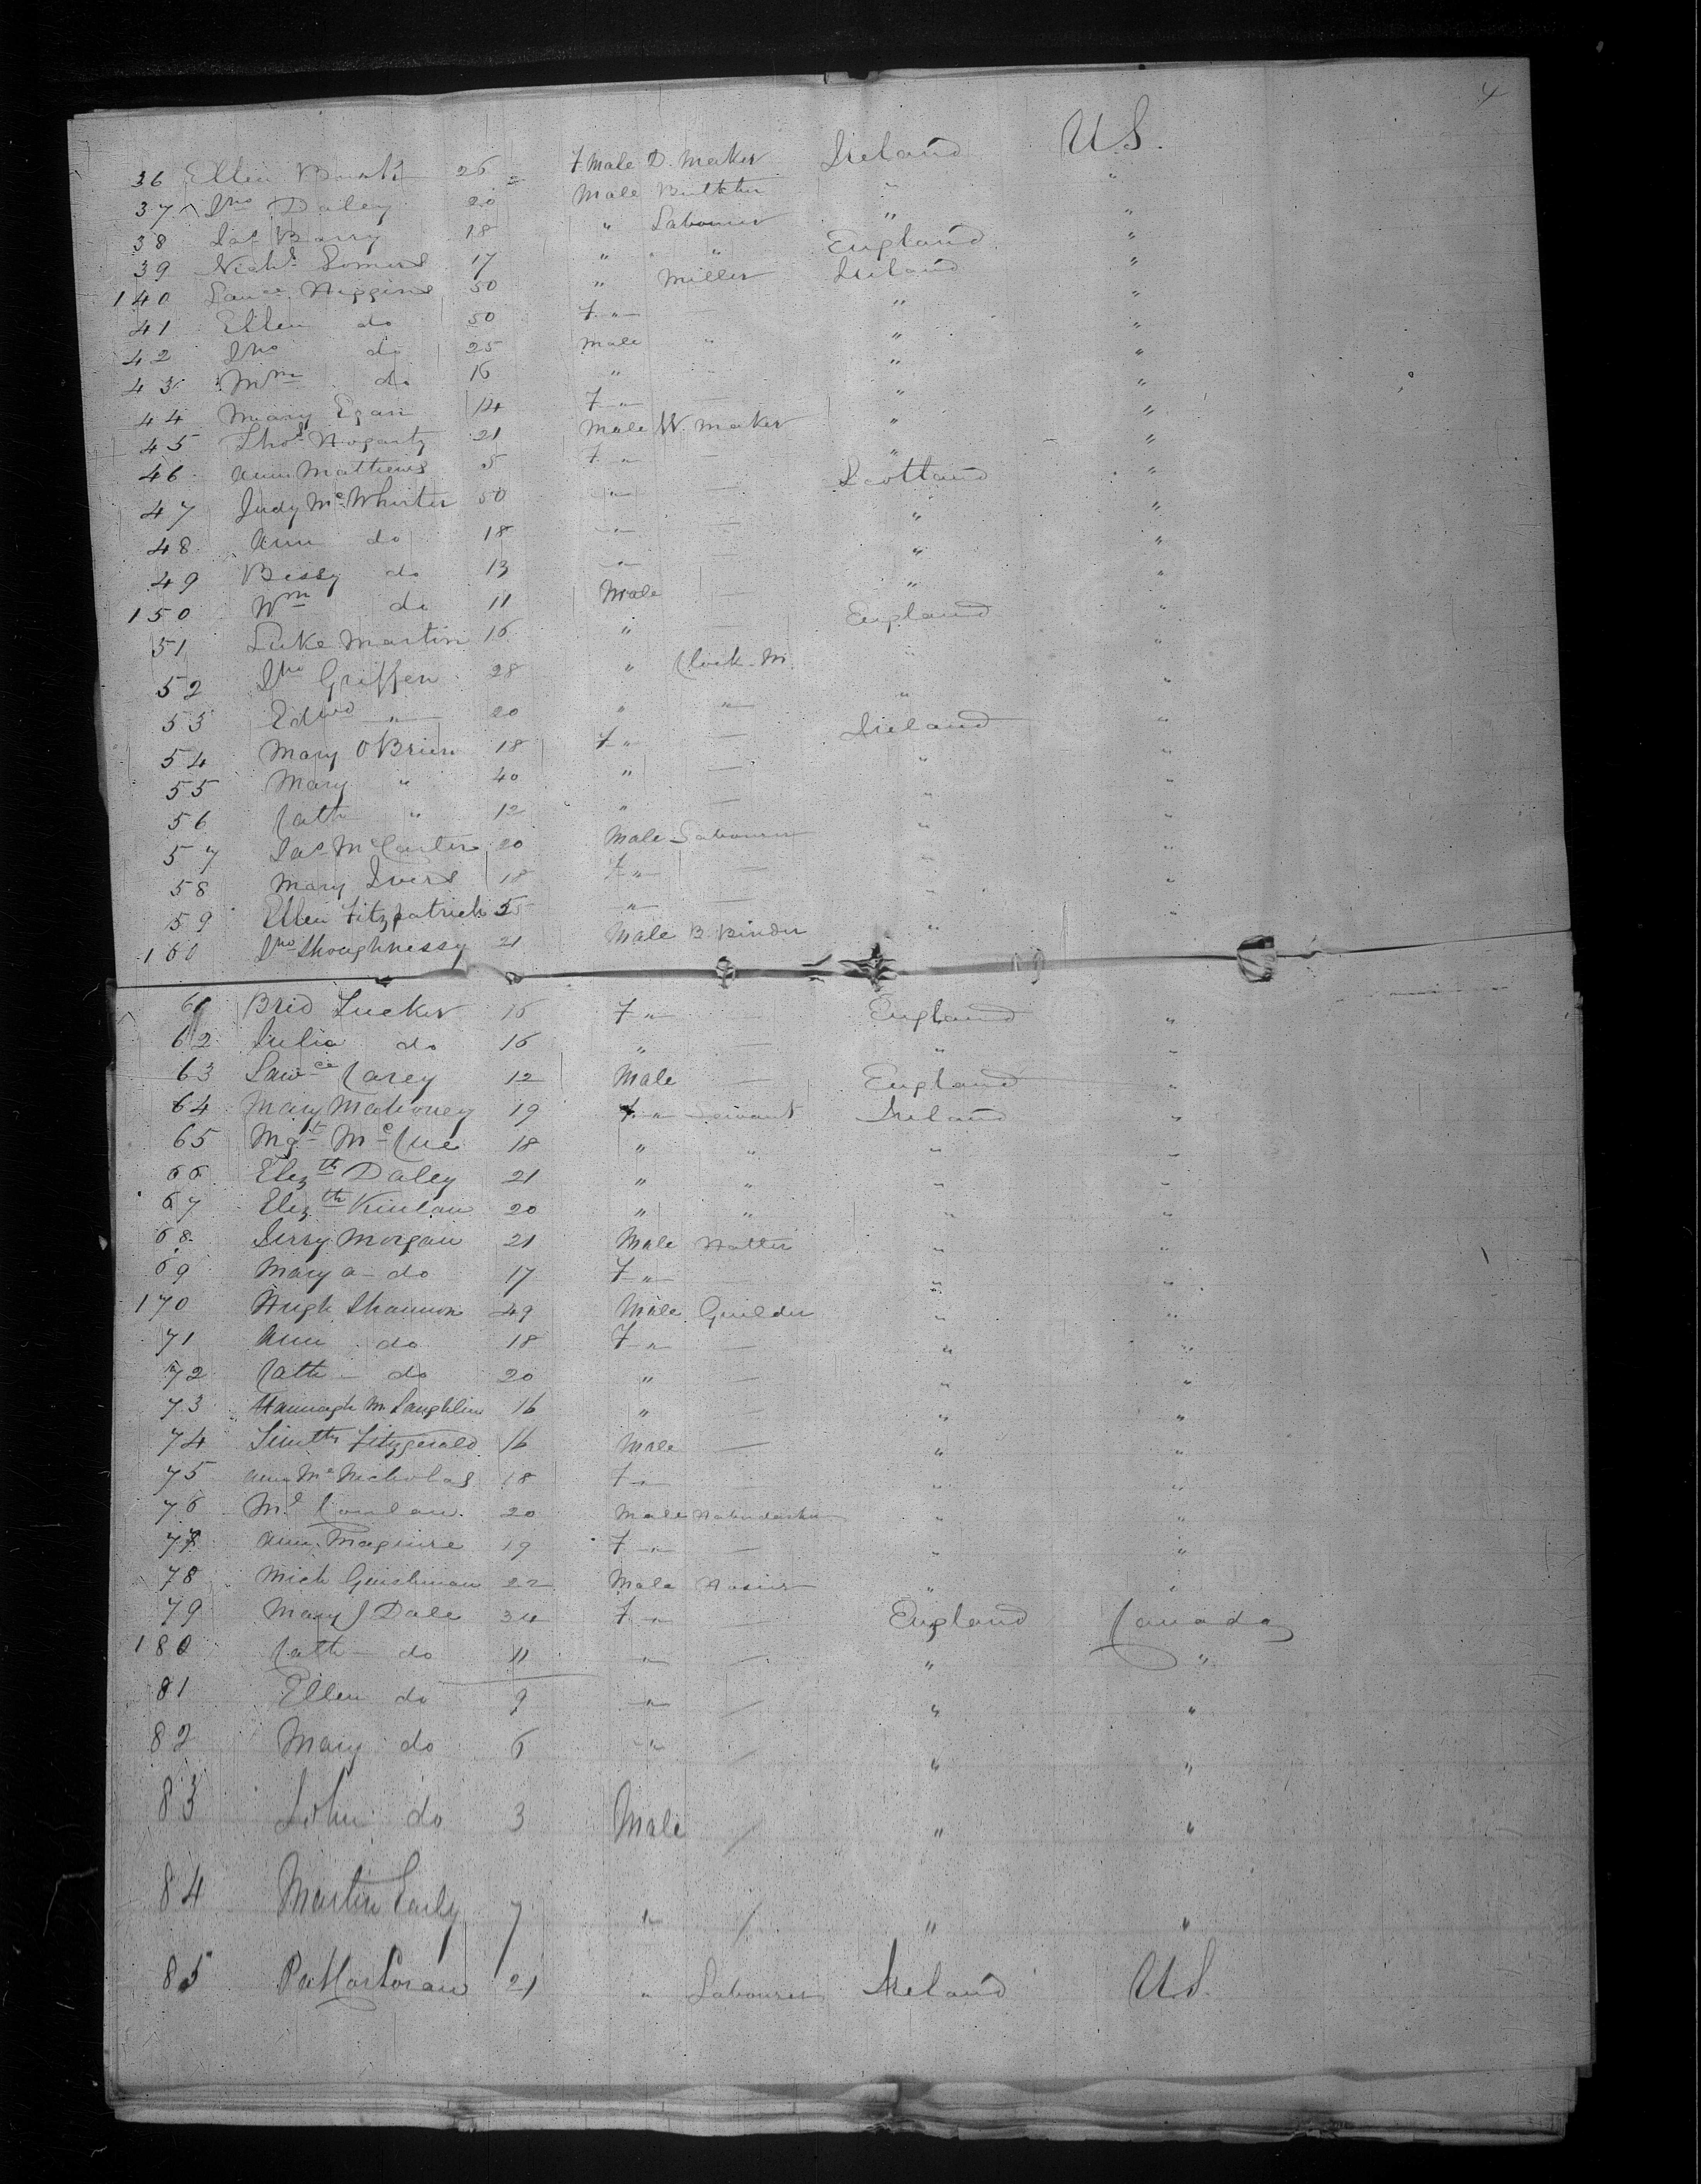 4
36 Ellen 26 F Male D. Maker Ireland U.S.
37 Jno Daley 20 Male Butcher " "
38 Jas Barry 18 " Labourer " "
39 Nichs Somers 17 " " England "
140 Lauce Higgins 50 " Miller Ireland "
41 Ellen do 50 F " — " "
42 Jno do 25 Male " " "
43 Wm do 16 " — " "
44 Mary Egan 14 F " — " "
45 Thos Hogarty 21 Male W. Maker " "
46 Ann Mathews 5 F " — " "
47 Judy McWhirter 50 " — Scotland "
48 Ann do 18 " — " "
49 Bessy do 13 " — " "
150 Wm do 11 Male — " "
51 Luke Martin 16 " — England "
52 Jno Griffen 28 " Clock. M. " "
53 Edwd " 20 " " " "
54 Mary OBrien 18 F " — Ireland "
55 Mary " 40 " — " "
56 Cath " 12 " — " "
57 Jas McCarten 20 Male Labourer " "
58 Mary Ivers 18 F " — " "
59 Ellen Fitzpatrick " — " "
160 Jno Shoughnessy 21 Male B. Binder " "
61 Brid Tucker 16 F " — England "
62 Julia do 16 " — " "
63 Lawce Carey 12 Male — England "
64 Mary Mahoney 19 F " servant Ireland "
65 Mgt McCue 18 " " " "
66 Elizth Daley 21 " " " "
67 Elizth Kinlan 20 " " " "
68 Jerry Morgan 21 Male Hatter " "
69 Mary a do 17 F " — " "
170 Hugh Shannon 49 Male Guilder " "
71 Ann do 18 F " — " "
72 Cath do 20 " — " "
73 Hannagh McLaughlin 16 " — " "
74 Timth Fitzgerald 16 Male — " "
75 Ann McNicholas 18 F " " "
76 Ml Conlan 20 Male " "
77 Ann Maguire 19 F " — " "
78 Mich 22 Male Hosier " "
79 Mary J Dale 34 F " — England Canada
180 Cath do 11 " — " "
81 Ellen do 9 " — " "
82 Mary do 6 " — " "
83 John do 3 Male — " "
84 Martin Early 7 " — " "
85 Pat Corcoran 21 " Labourer Ireland U.S.